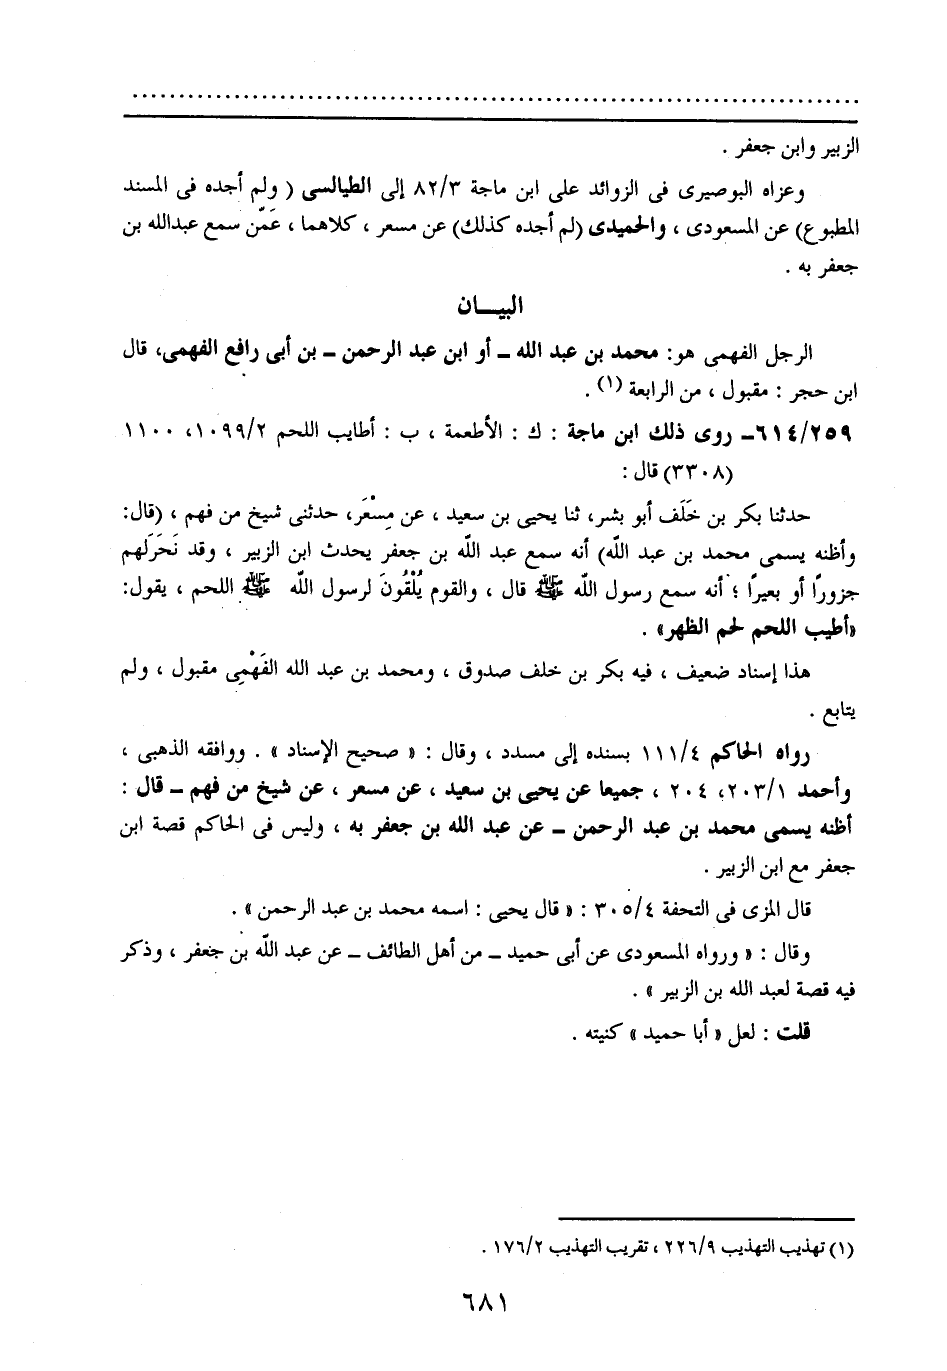 الزبير وابن جعفر .
وعزاه البوصيرى فى الزوائد على ابن ماجة ٨٢/٣ إلى الطيالسى ( ولم أجده فى المسند
المطبوع) عن المسعودى ، والحميدى (لم أجده كذلك) عن مسعر ، كلاهما ، عَمّن سمع عبدالله بن
جعفر به .
البيـــان
الرجل الفهمى هو: محمد بن عبد الله ــ أو ابن عبد الرحمن ــ بن أبى رافع الفهمى، قال
ابن حجر : مقبول ، من الرابعة (١) .
٦١٤/٢٥٩ــ روى ذلك ابن ماجة : ك : الأطعمة ، ب : أطايب اللحم ١٠٩٩/٢، ١١٠٠
(٣٣٠٨) قال :
حدثنا بكر بن خَلَف أبو بشر، ثنا يحيى بن سعيد ، عن مِسْعَر، حدثنى شيخ من فهم ، (قال:
وأظنه يسمى محمد بن عبد الله) أنه سمع عبد الله بن جعفر يحدث ابن الزبير ، وقد نَحَرَلهم
جزورًا أو بعيرًا ؛ أنه سمع رسول الله ﷺ قال ، والقوم يُلْقُونَ لرسول الله ﷺ اللحم ، يقول:
«أطيب اللحم لحم الظهر» .
هذا إسناد ضعيف ، فيه بكر بن خلف صدوق ، ومحمد بن عبد الله الفَهْمِى مقبول ، ولم
يتابع .
رواه الحاكم ١١١/٤ بسنده إلى مسدد ، وقال : « صحيح الإسناد » . ووافقه الذهبى ،
وأحمد ٢٠٣/١، ٢٠٤ ، جميعا عن يحيى بن سعيد ، عن مسعر ، عن شيخ من فهم ــ قال :
أظنه يسمى محمد بن عبد الرحمن ــ عن عبد الله بن جعفر به ، وليس فى الحاكم قصة ابن
جعفر مع ابن الزبير .
قال المزى فى التحفة ٣٠٥/٤ : « قال يحيى : اسمه محمد بن عبد الرحمن » .
وقال : « ورواه المسعودى عن أبى حميد ــ من أهل الطائف ــ عن عبد الله بن جعفر ، وذكر
فيه قصة لعبد الله بن الزبير » .
قلت : لعل « أبا حميد » كنيته .
(١) تهذيب التهذيب ٢٢٦/٩ ، تقريب التهذيب ١٧٦/٢ .
٦٨١